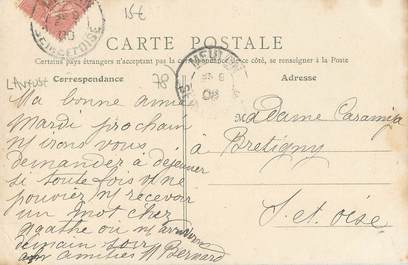 15€
SEINE-ET-OISE
CARTE POSTALE
Certains pays étrangers n'acceptant pas la correspondance de ce côté, se renseigner à la Poste
Correspondance
Adresse
78
Ma bonne amie
Mardi prochain
ns irons vous
demander à déjeuner
si toute fois vs ne
pouviez ns recevoir
un mot chez
agathe où ns arrivons
demain soir
amitiés M Bernard
Madame
à
Bretigny
S. et oise